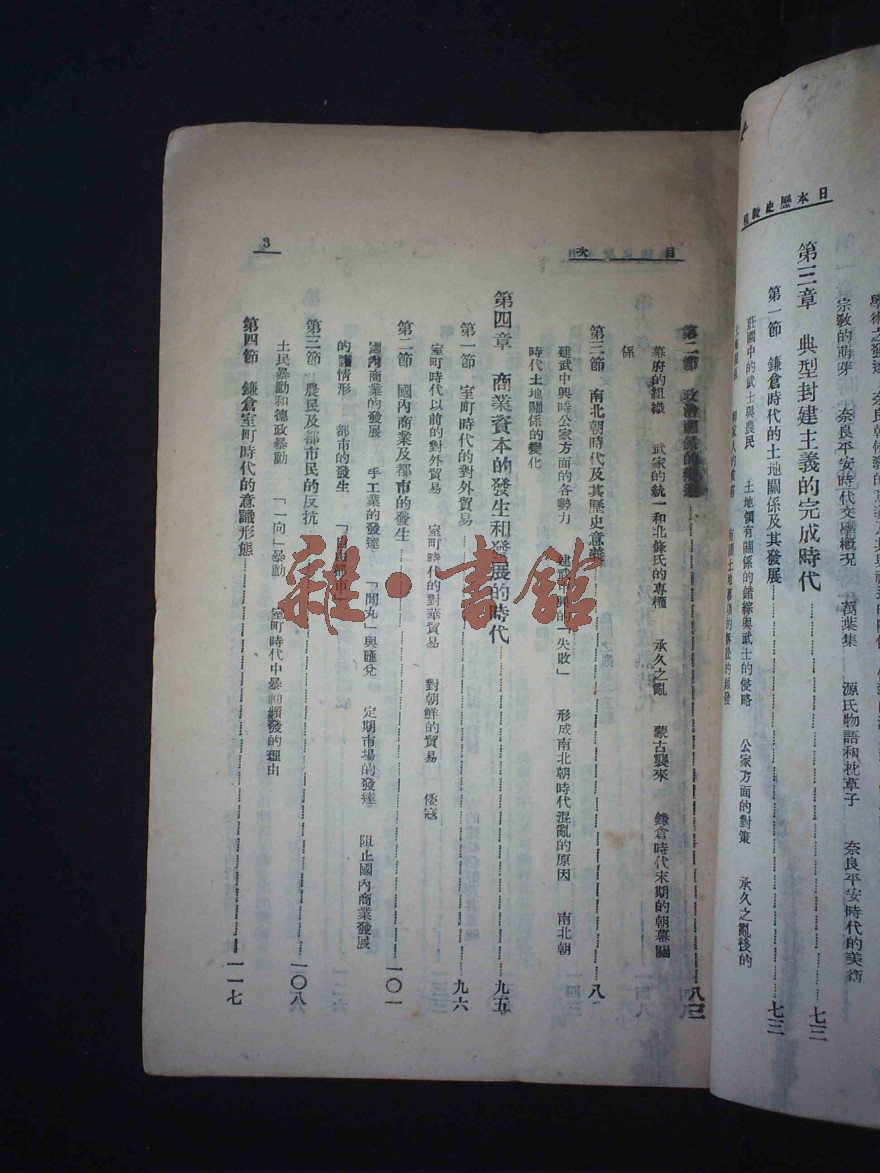 日本歷史教程
宗敎的萌芽　奈良平安時代文學槪況　萬葉集　源氏物語和枕草子　奈良平安時代的美術
第三章　典型封建主義的完成時代……七三
第一節　鎌倉時代的土地關係及其發展……七三
莊園中的武士與農民　土地領有關係的錯綜與武士的侵略　公家方面的對策　承久之亂後的
目次
3
第二節　政治關係的
幕府的組織　武家的統一和北條氏的專權　承久之亂　蒙古襲來　鎌倉時代末期的朝幕關
係
第三節　南北朝時代及其歷史意義……八
建武中興時公家方面的各勢力　建武中興的「失敗」　形成南北朝時代混亂的原因　南北朝
時代土地關係的變化
第四章　商業資本的發生和發展的時代……九五
第一節　室町時代的對外貿易……九六
室町時代以前的對外貿易　室町時代的對華貿易　對朝鮮的貿易　倭寇
第二節　國內商業及都市的發生……一〇一
國內商業的發展　手工業的發達　「問丸」與匯兌　定期市場的發達　阻止國內商業發展
的諸情形　都市的發生　「自由都市」
第三節　農民及都市民的反抗……一〇八
土民暴動和德政暴動　「一向」暴動　室町時代中暴動頻發的理由
第四節　鎌倉室町時代的意識形態……一一七
雜·書館